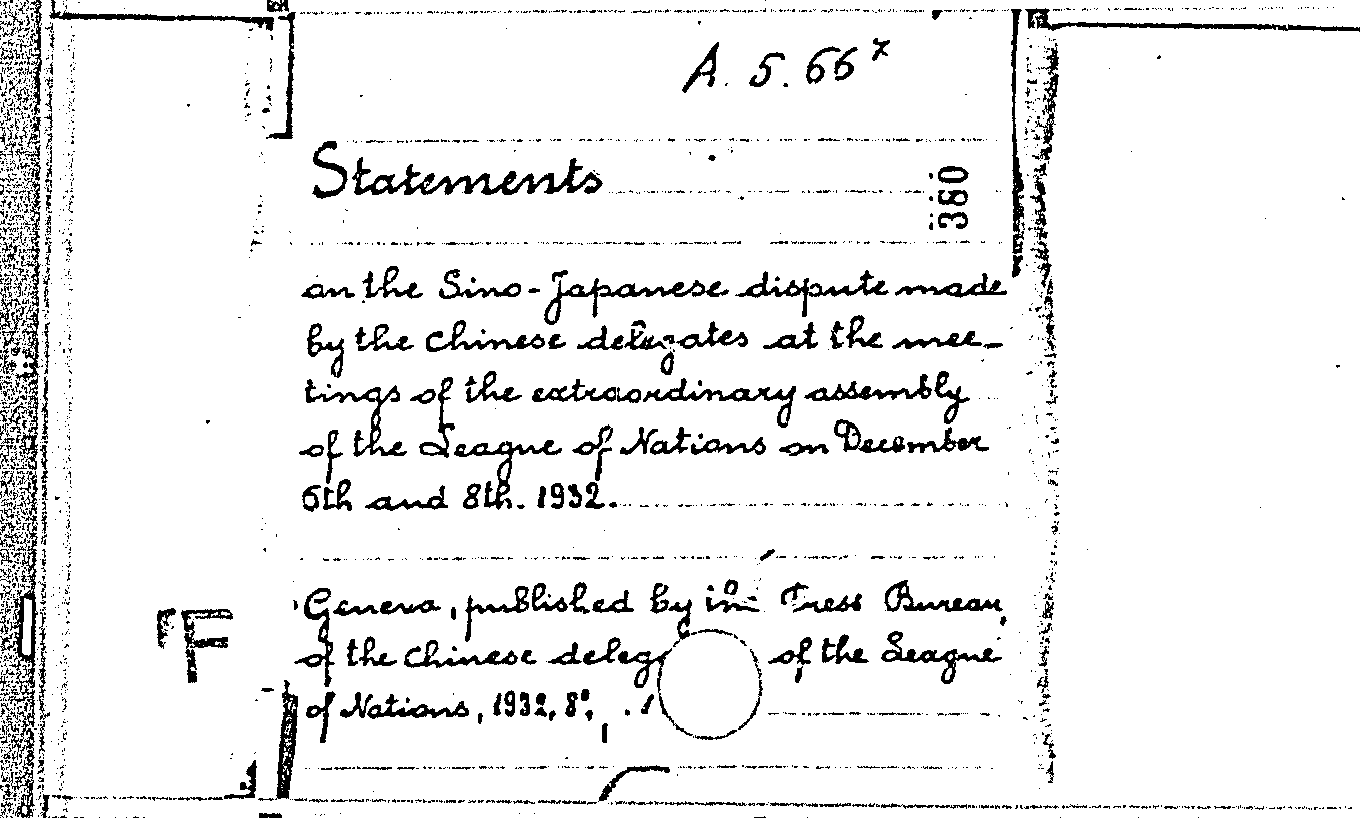 A. 5. 66ˣ
Statements
360
on the Sino-Japanese dispute made
by the Chinese delegates at the mee-
tings of the extraordinary assembly
of the League of Nations on December
6th and 8th. 1932.
Geneva, published by the Press Bureau
of the Chinese deleg of the League
of Nations, 1932, 8°,
F